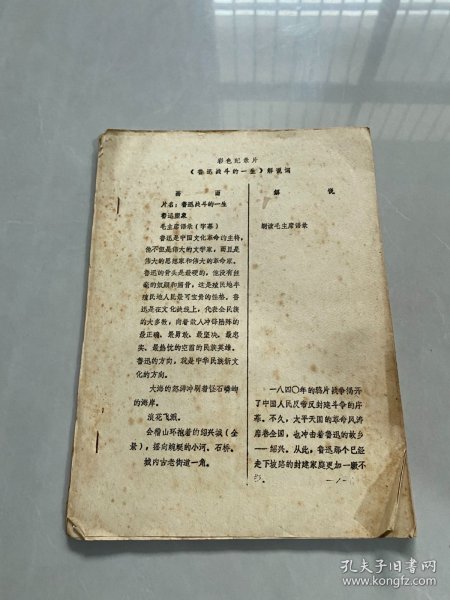 彩色纪录片
《鲁迅战斗的一生》解说词
画 面
片名：鲁迅战斗的一生
鲁迅塑象
毛主席语录（字幕）
鲁迅是中国文化革命的主将，
他不但是伟大的文学家，而且是
伟大的思想家和伟大的革命家。
鲁迅的骨头是最硬的，他没有丝
毫的奴颜和媚骨，这是殖民地半
殖民地人民最可宝贵的性格。鲁
迅是在文化战线上，代表全民族
的大多数，向着敌人冲锋陷阵的
最正确、最勇敢、最坚决、最忠
实、最热忱的空前的民族英雄。
鲁迅的方向，就是中华民族新文
化的方向。
大海的怒涛冲刷着怪石嶙峋
的海岸。
浪花飞溅。
会稽山环抱着的绍兴城（全
景），摇向蜿蜒的小河、石桥。
城内古老街道一角。
解 说
朗读毛主席语录
一八四〇年的鸦片战争揭开
了中国人民反帝反封建斗争的序
幕。不久，太平天国的革命风涛
席卷全国，也冲击着鲁迅的故乡
——绍兴。从此，鲁迅那个已经
走下坡路的封建家庭更加一蹶不
－1－
孔夫子旧书网
www.kongfz.com